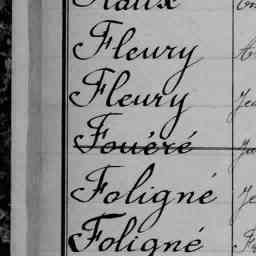 Fleury
Fleury
Fouéré
Foligné
Foligné